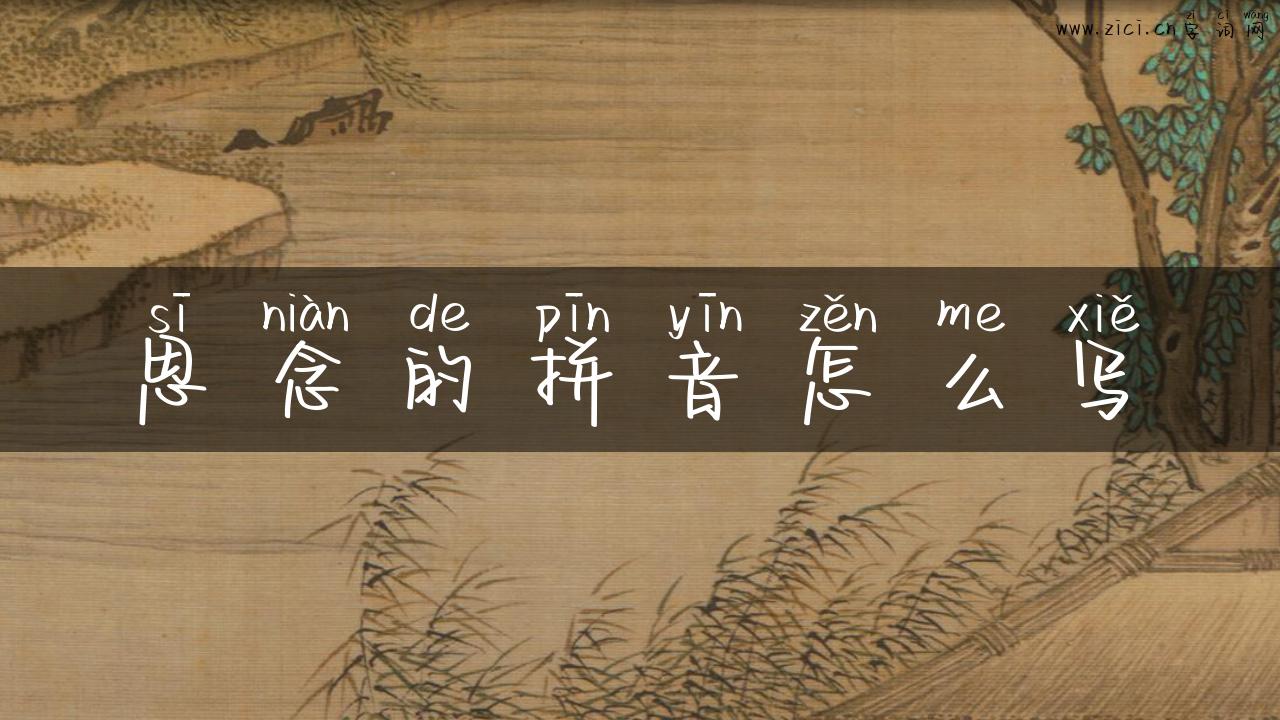 zì cí wǎng
www.zici.cn字词网
sī niàn de pīn yīn zěn me xiě
思念的拼音怎么写